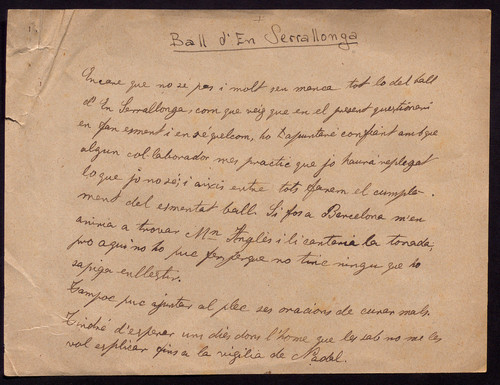 Ball d'En Serrallonga
Encare que no se pas i molt seu manca tot lo del ball
d'En Serrallonga, com que veig que en el present questionari
en fan esment i en sé quelcom, ho apuntaré confiant amb que
algun col·laborador mes practic que jo haurá replegat
lo que jo no sé; i aixis entre tots farem el cumple-
ment del esmentat ball. Si fos a Barcelona m'en
aniria a trovar Mn Anglès i li cantaria la tonada,
pro aqui no ho puc fer, perque no tinc ningu que ho
sapiga enllestir.
Tampoc puc ajuntar al plec ses oracions de curar mals.
Tindré d'esperar uns dies dons l'home que les sab no me les
vol esplicar fins a la vigilia de Nadal.